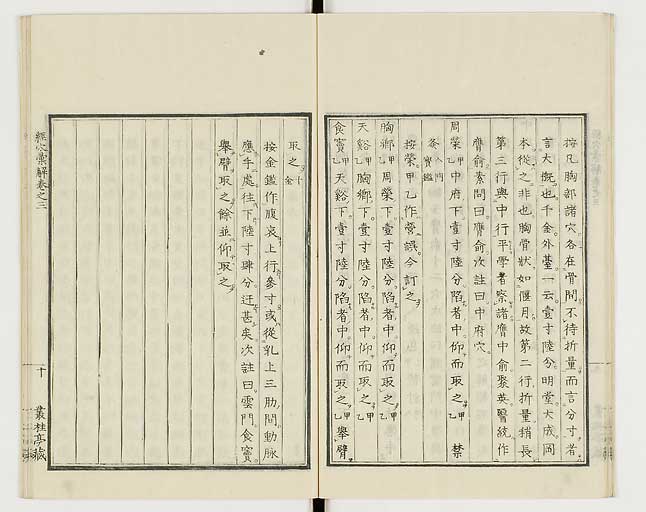 按凡胸部諸穴各在骨間不待折量而言分寸者
言大概也千金外臺一云壹寸陸分明堂大成岡
本從之非也胸骨狀如偃月故第二行折量稍長
第三行與中行平學者察諸膺中俞聚英醫統作
膺俞素問曰膺俞次註曰中府穴
周榮甲乙中府下壹寸陸分陷者中仰而取之甲乙禁
灸入門寶鑑
按榮甲乙作營誤今訂之
胸鄉甲乙周榮下壹寸陸分陷者中仰而取之甲乙
天谿甲乙胸鄉下壹寸陸分陷者中仰而取之甲乙
食竇甲乙天谿下壹寸陸分陷者中仰而取之甲乙舉臂
取之千金
按金鑑作腹哀上行參寸或從乳上三肋間動脈
應手處往下陸寸肆分迂甚矣次註曰雲門食竇
舉臂取之餘並仰取之
經穴彙解卷之三
十
叢桂亭藏